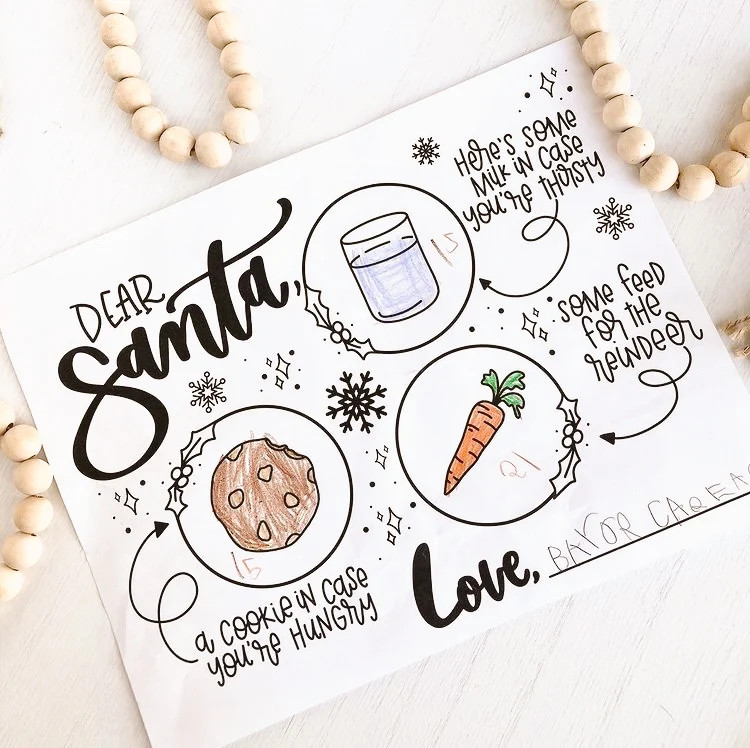 DEAR
Santa,
HERE'S SOME
MILK IN CASE
YOU'RE THIRSTY
15
SOME FEED
FOR THE
REINDEER
21
15
a COOKIE IN CASE
YOU'RE HUNGRY
Love,